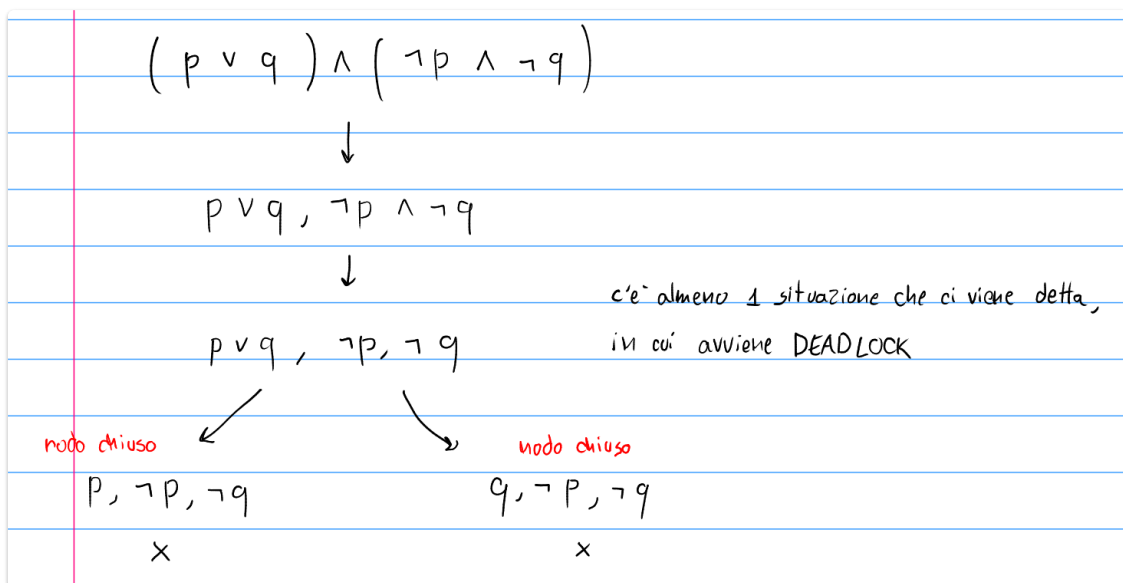 (p ∨ q) ∧ (¬p ∧ ¬q)
↓
p ∨ q, ¬p ∧ ¬q
↓
c'e' almeno 1 situazione che ci viene detta,
p ∨ q, ¬p, ¬q
in cui avviene DEADLOCK
nodo chiuso
nodo chiuso
p, ¬p, ¬q
q, ¬p, ¬q
×
×